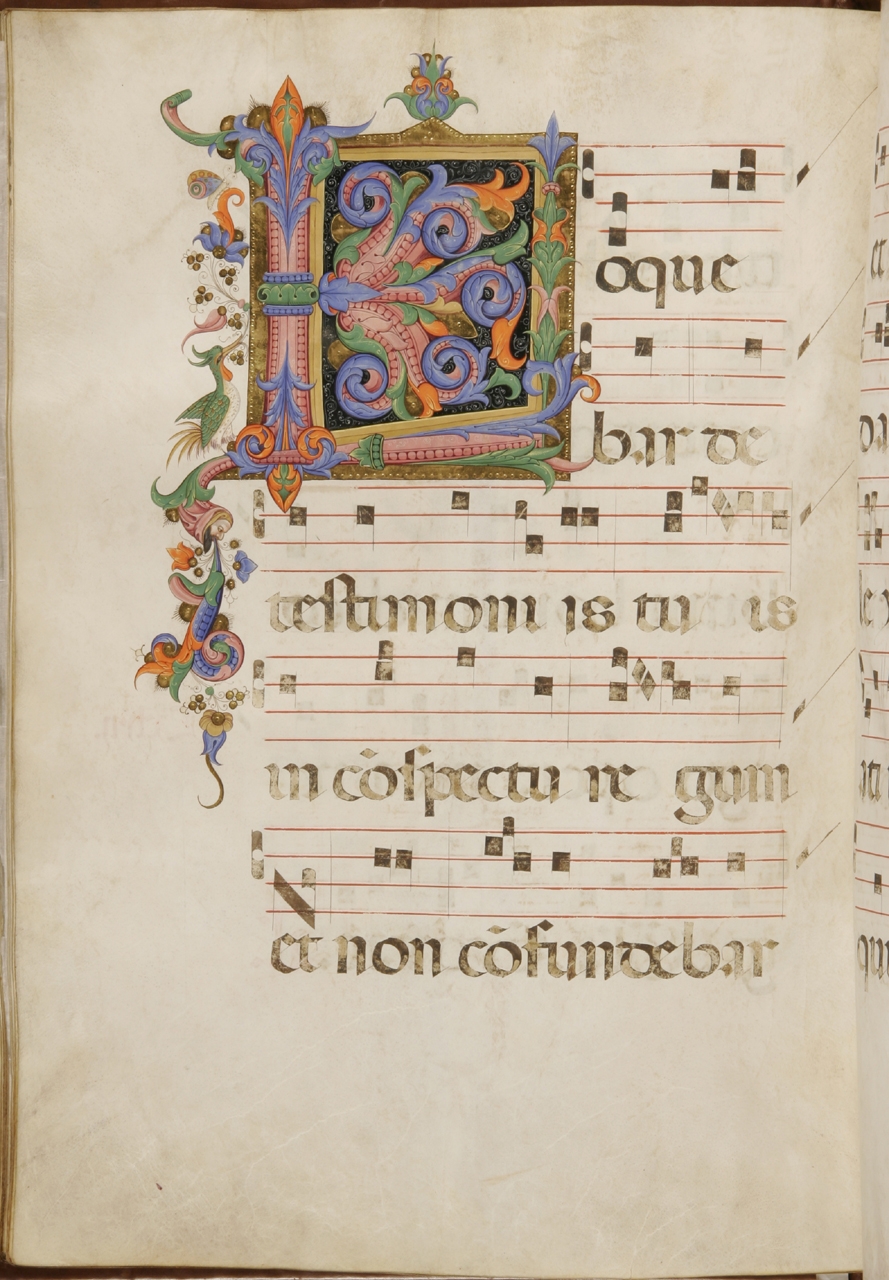 Loque
bar de
testimoniis tuis
in cōspectu regum
et non cōfundebar